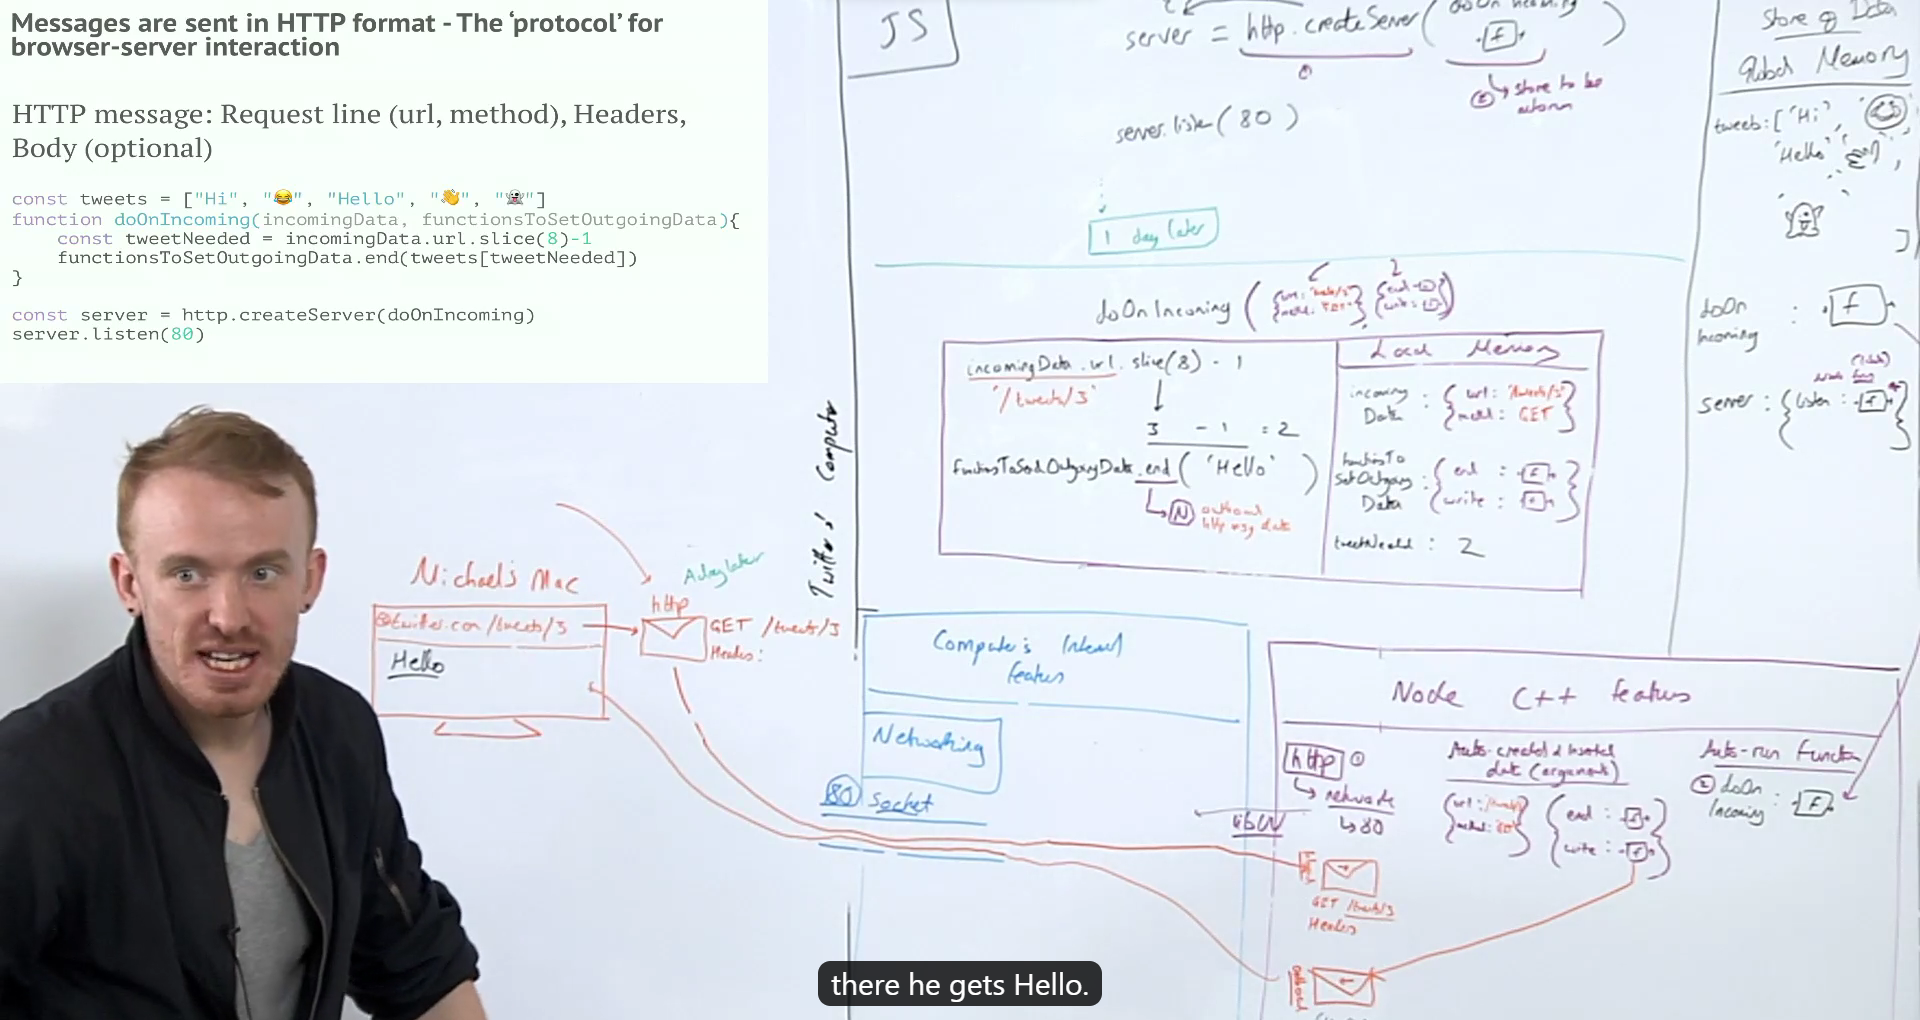 Messages are sent in HTTP format - The ‘protocol’ for
browser-server interaction
HTTP message: Request line (url, method), Headers,
Body (optional)
const tweets = ["Hi", "😂", "Hello", "👋", "👻"]
function doOnIncoming(incomingData, functionsToSetOutgoingData){
const tweetNeeded = incomingData.url.slice(8)-1
functionsToSetOutgoingData.end(tweets[tweetNeeded])
}
const server = http.createServer(doOnIncoming)
server.listen(80)
JS
server = http.createServer(
f
)
store to be
server.listen(80)
1 day later
Store of Data
Global Memory
tweets: ['Hi',
'Hello'
,
]
doOn
Incoming : f
server : { listen : f }
doOnIncoming (
incomingData.url.slice(8) - 1
'/tweets/3'
3 - 1 = 2
.end( 'Hello' )
N outbound
http msg data
Local Memory
incoming
Data : { url : '/tweets/3'
GET }
Data : { end : f
write : f }
: 2
Twitter's Computer
Michael's Mac
twitter.com/tweets/3
Hello
A day later
http
GET /tweets/3
Headers:
Computer's Internal
features
Networking
80 Socket
libuv
Node C++ features
http
network
80
data (argument)
{ end : f
write : f }
Auto-run Function
doOn
Incoming : f
GET /tweets/3
Headers
there he gets Hello.